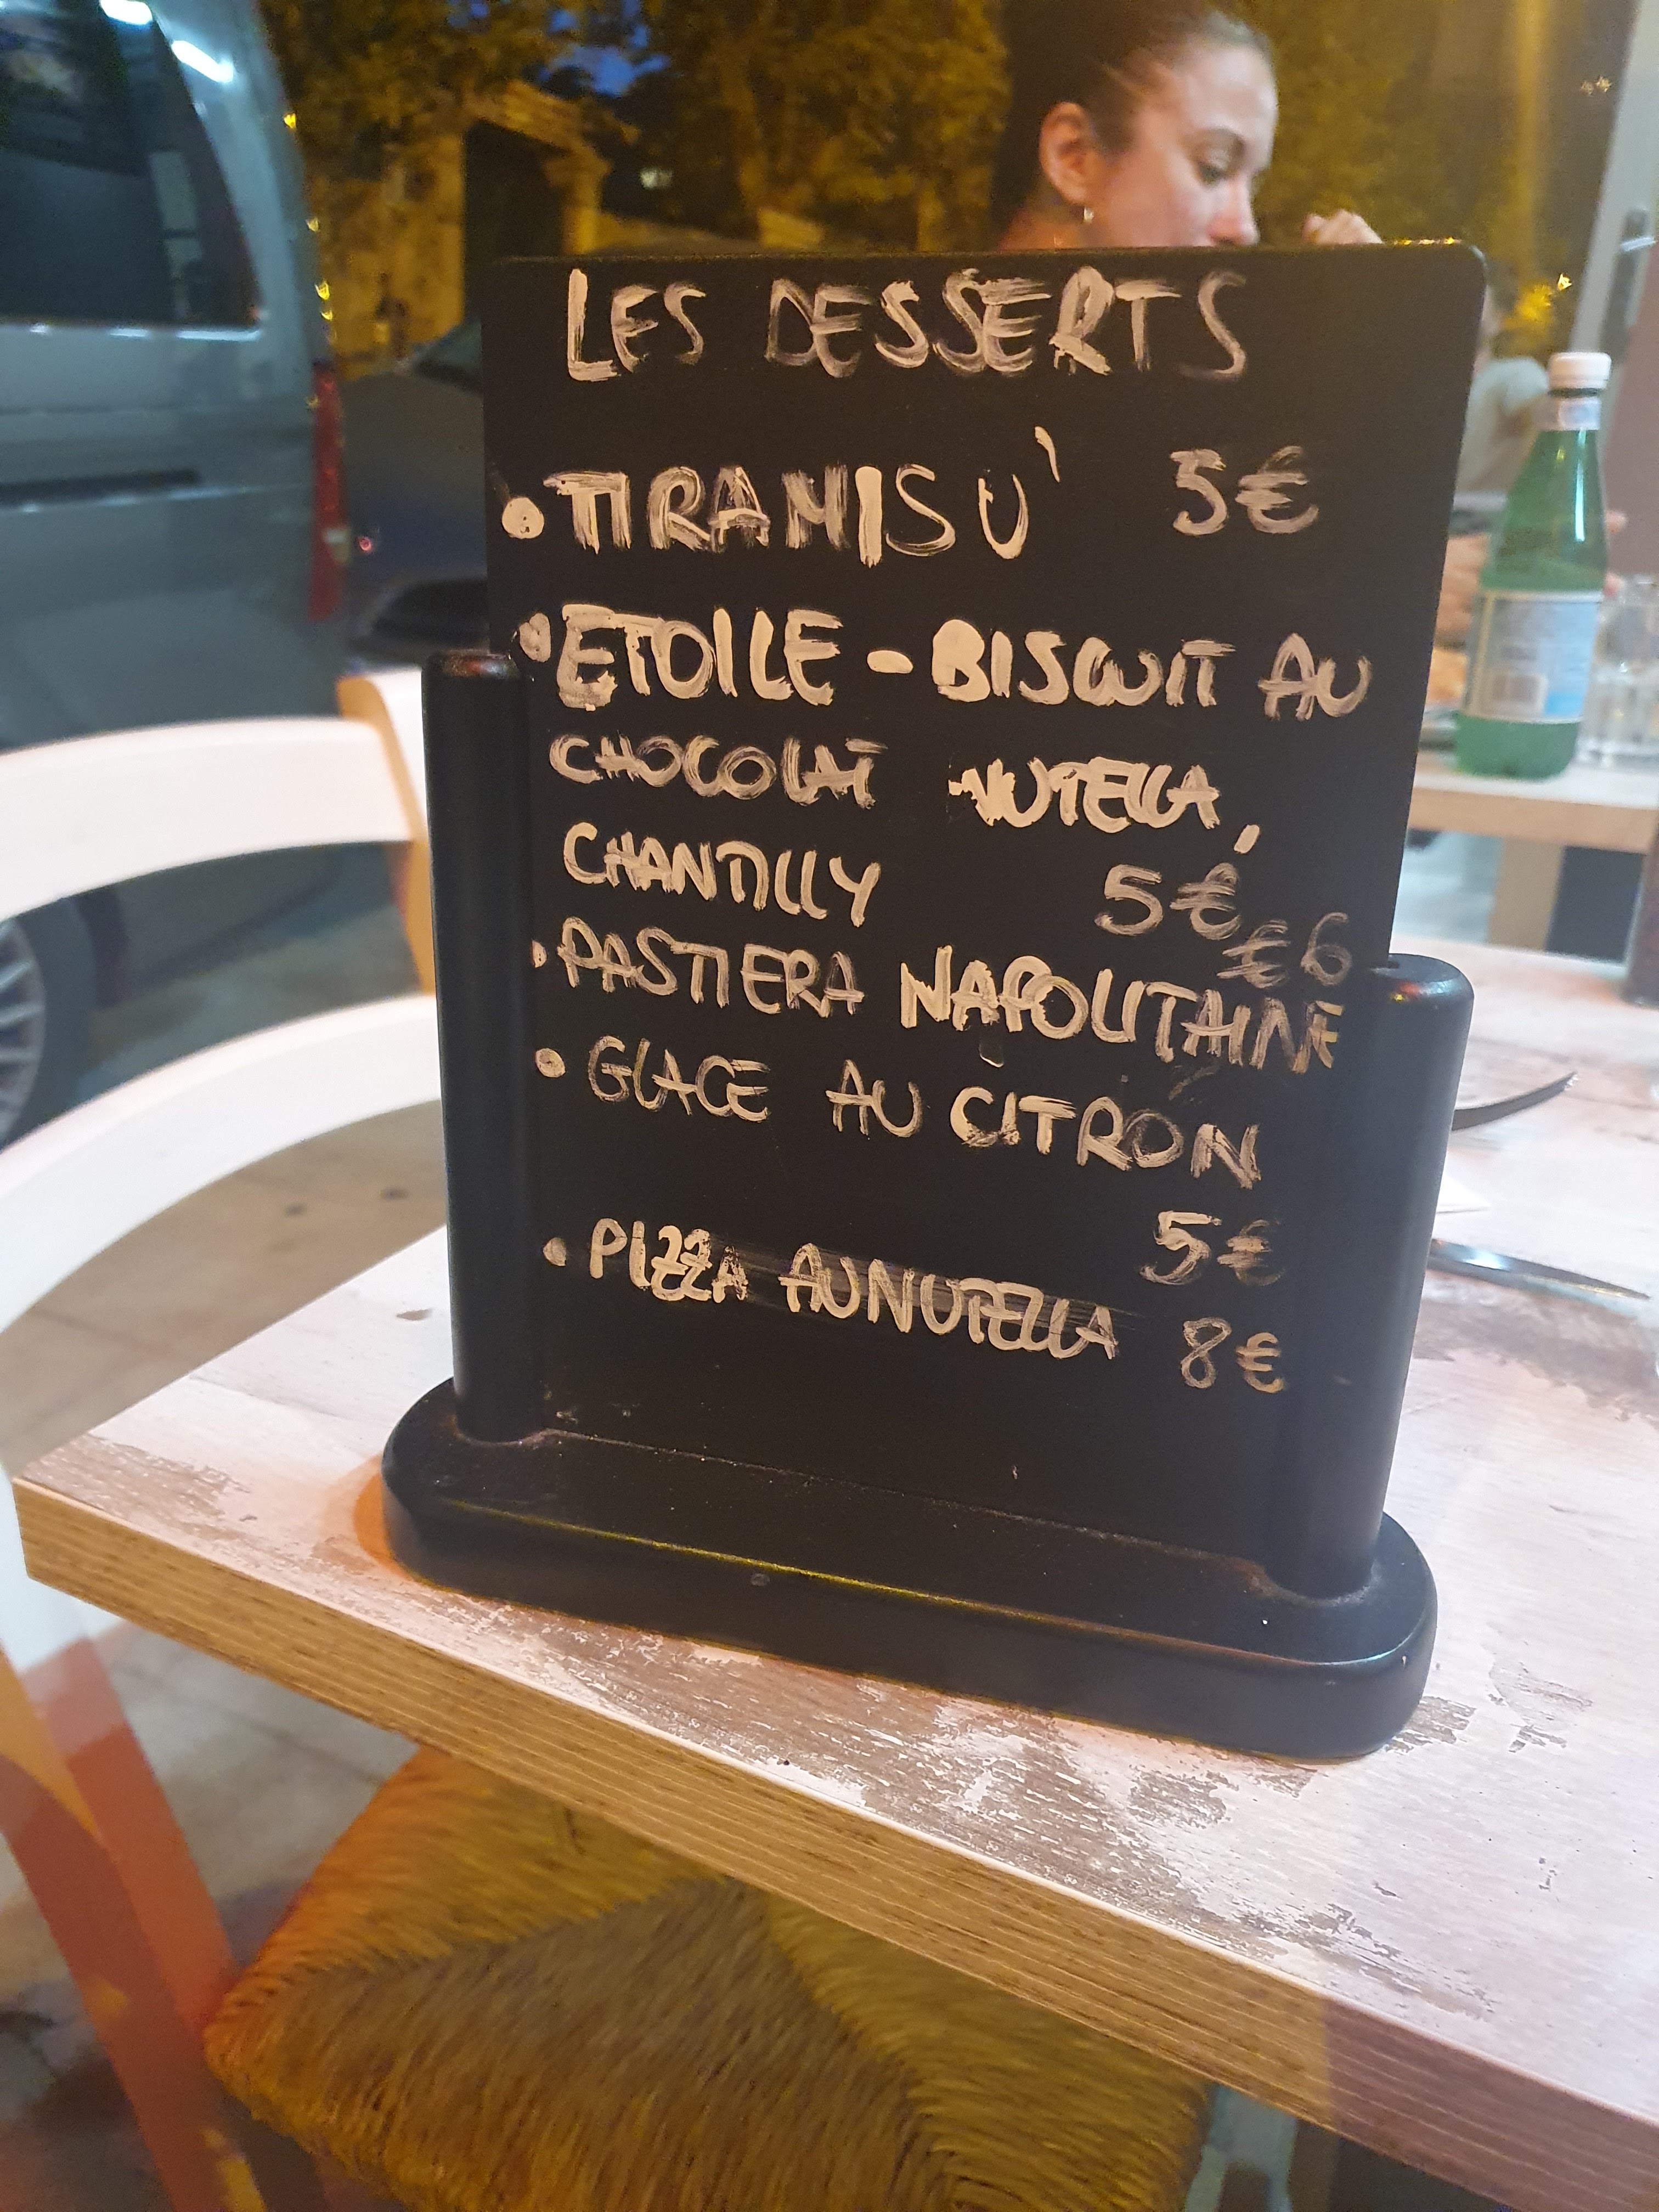 LES DESSERTS
• TIRAMISU' 5€
• ETOILE - BISCUIT AU
CHOCOLAT NUTELLA,
CHANTILLY 5€
€6
• PASTIERA NAPOLITAINE
• GLACE AU CITRON
5€
• PIZZA AU NUTELLA 8€